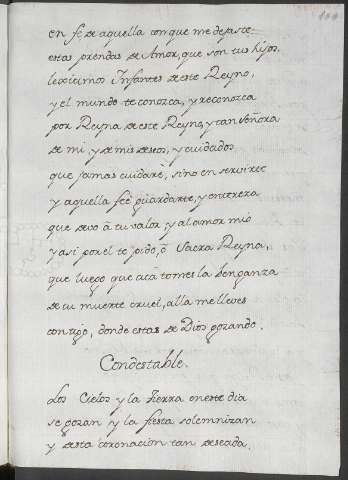 en fe de aquella con que me dejaste
estas prendas de Amor, que son tus hijos
lexitimos Infantes deste Reyno,
y el mundo te conozca, y reconozca
por Reyna deste Reyno, y tan Señora
de mi, y de mis deseos, y cuidados
que jamas cuidaré, sino en servirte
y aquella feé guardarte, y entereza
que devo á tu valor, y al amor mio
y asi por el te pido, ó Sacra Reyna,
que luego que acá tomes la benganza
de tu muerte cruel, alla me lleves
contigo, donde estas de Dios gozando.
Condestable.
Los Cielos y la tierra en este dia
se gozan y la fiesta solemnizan
y desta coronacion tan deseada.